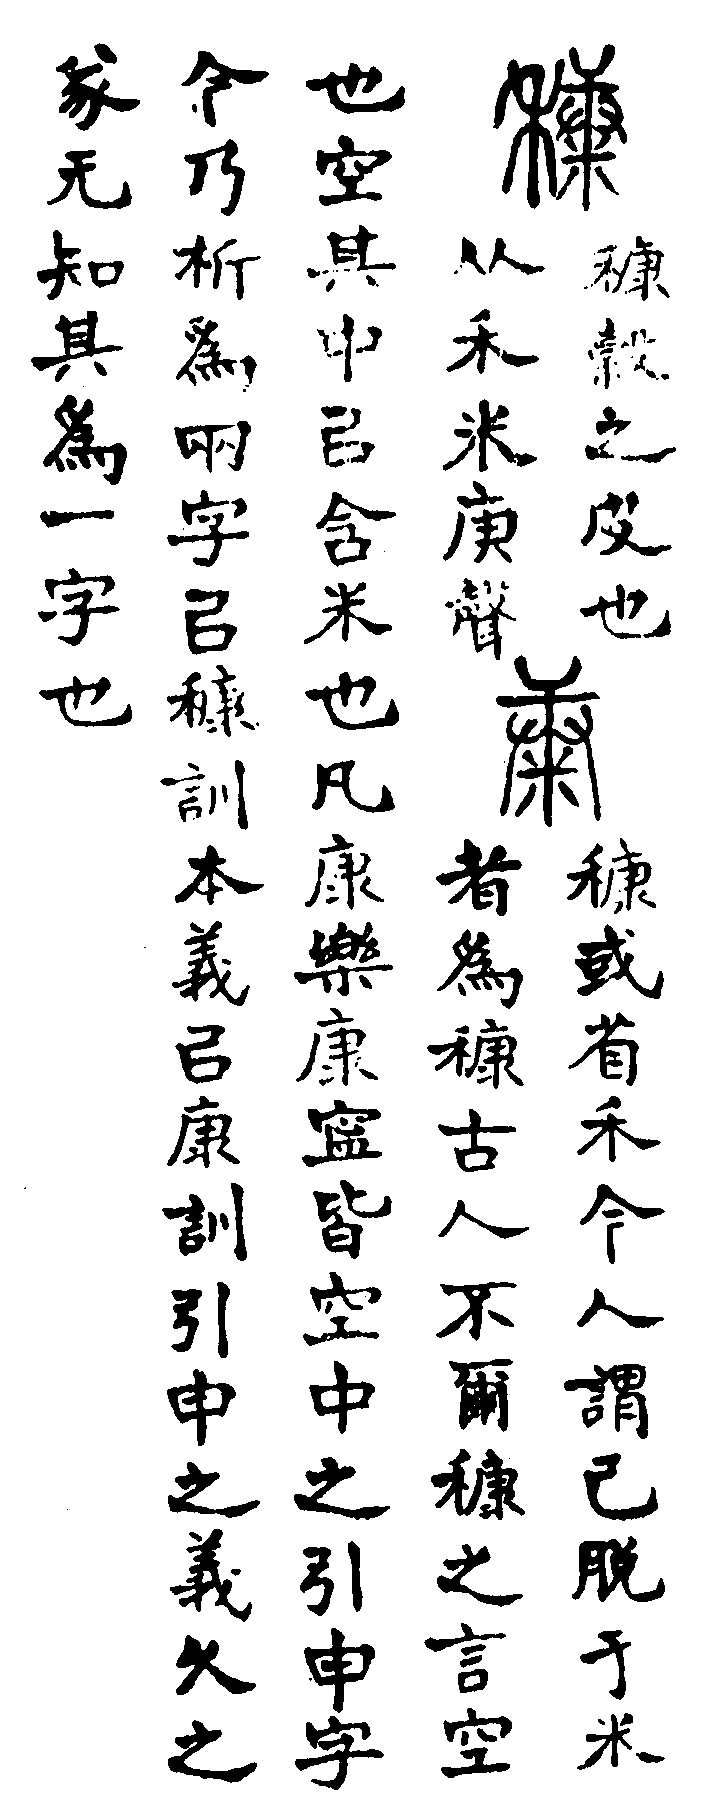 穅
穅穀之皮也
从禾米庚聲
康
穅或省禾今人謂已脫于米
者爲穅古人不爾穅之言空
也空其中㠯含米也凡康樂康寍皆空中之引申字
今乃析爲兩字㠯穅訓本義㠯康訓引申之義久之
㒸无知其爲一字也